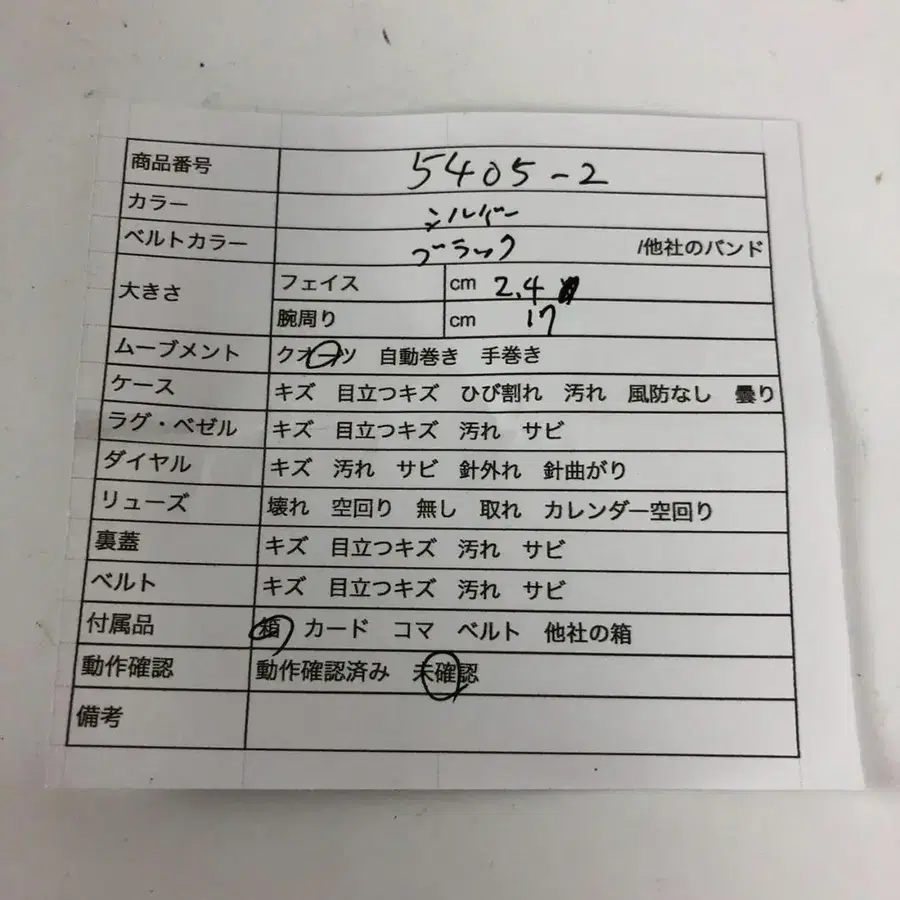 商品番号 5405-2
カラー シルバー
ベルトカラー ブラック /他社のバンド
大きさ フェイス cm 2.4
腕周り cm 17
ムーブメント クオーツ 自動巻き 手巻き
ケース キズ 目立つキズ ひび割れ 汚れ 風防なし 曇り
ラグ・ベゼル キズ 目立つキズ 汚れ サビ
ダイヤル キズ 汚れ サビ 針外れ 針曲がり
リューズ 壊れ 空回り 無し 取れ カレンダー空回り
裏蓋 キズ 目立つキズ 汚れ サビ
ベルト キズ 目立つキズ 汚れ サビ
付属品 箱 カード コマ ベルト 他社の箱
動作確認 動作確認済み 未確認
備考